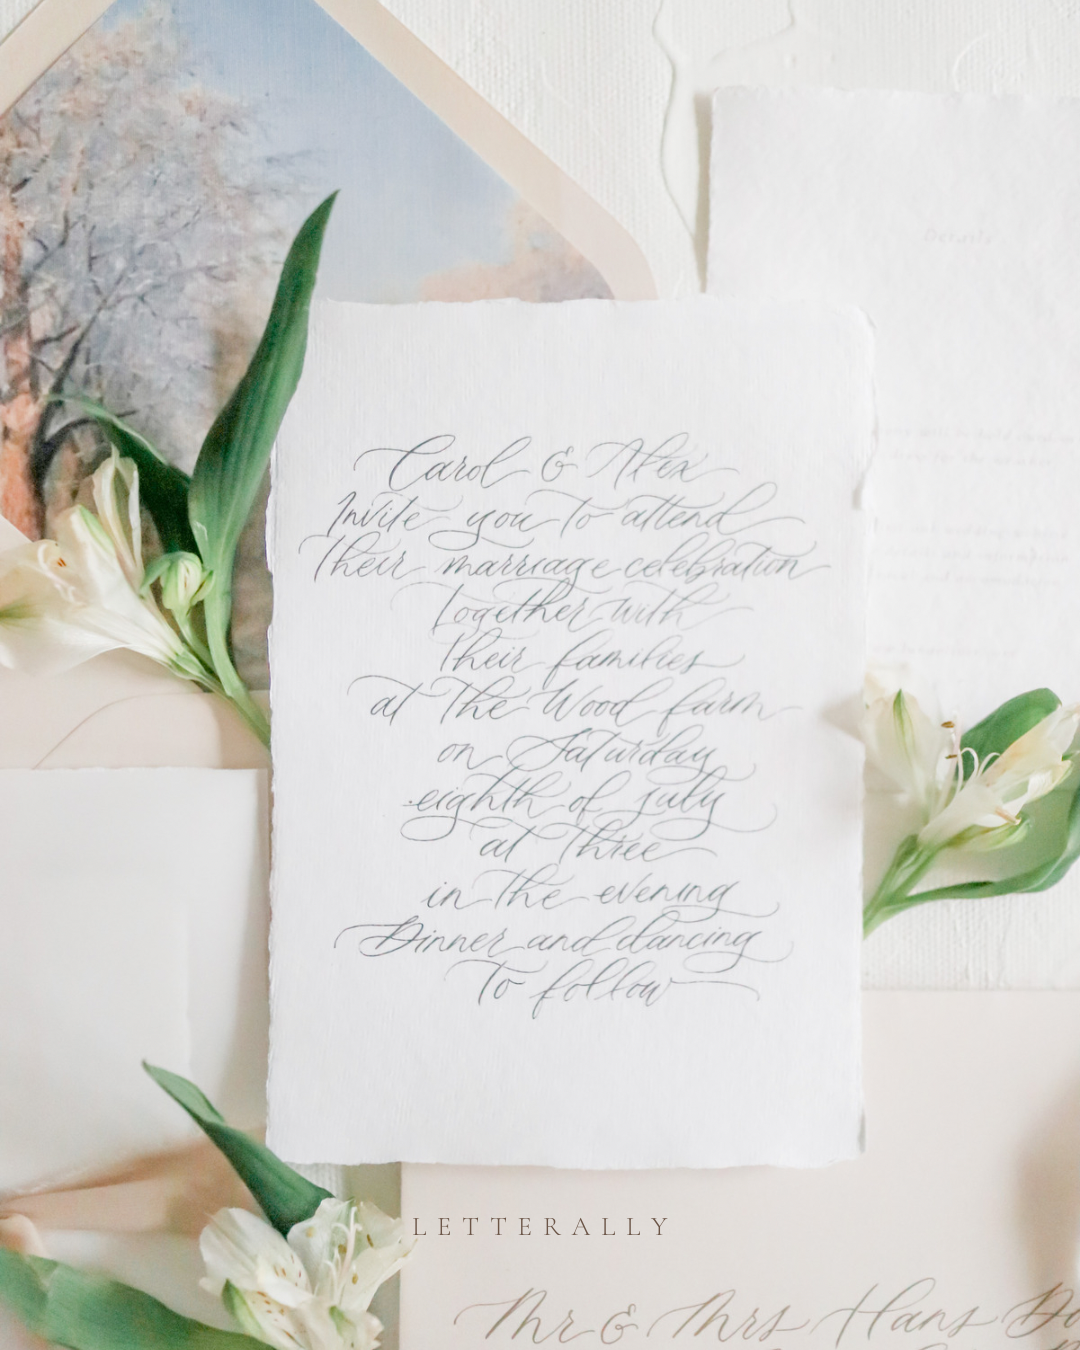 Details
Carol & Alex
Invite you to attend
Their marriage celebration
Together with
Their families
at The Wood farm
on Saturday
eighth of july
at Three
in The evening
Dinner and dancing
To follow
LETTERALLY
Mr & Mrs Hans